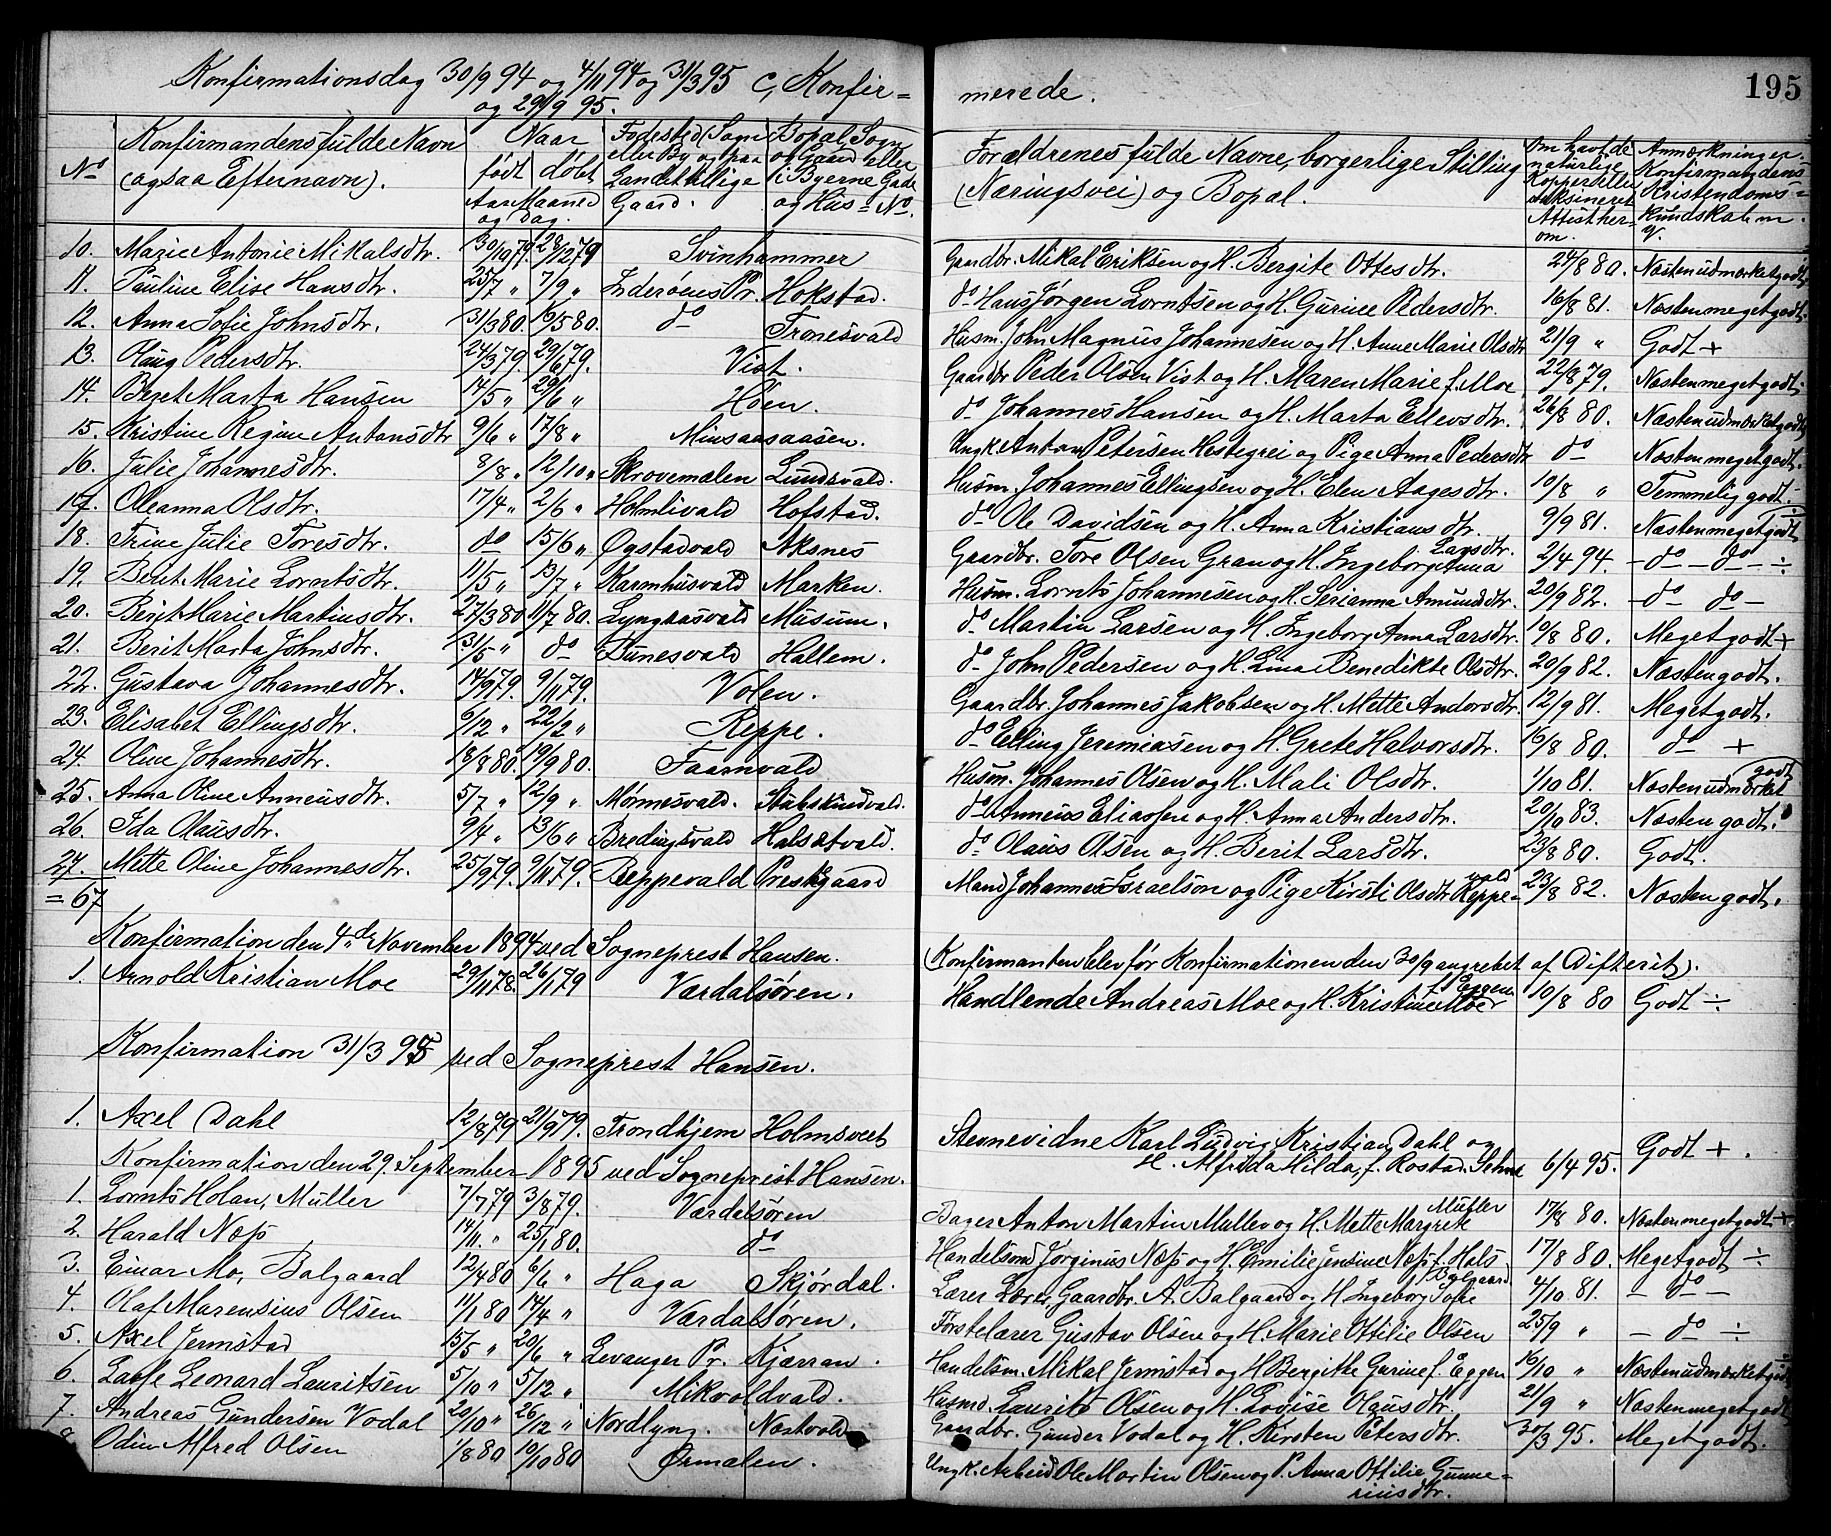 Konfirmationsdag 30/9 94 og 4/11 94 og 31/3 95 C, Konfir= merede. 195
og 29/9 95.
No Konfirmandens fulde Navn (ogsaa Efternavn). Naar født døbt Aar Maaned og Dag. Fødested (Sogn eller By og paa Landet tillige Gaard. Bopæl, Sogn og Gaard eller i Byerne Gade og Hus=No. Forældrenes fulde Navne, borgerlige Stilling (Næringsvei) og Bopæl. Om havt de naturlige Kopper eller vaksineret Attist her- om. Anmerkninger. Konfirmandens Kristendoms= kundskab m. v.
10. Marie Antonie Mikalsdtr. 30/10 79. 28/12 79 Svinhammer Gaardbr. Mikal Eriksen og H. Bergite Ottesdtr. 24/8 80. Næsten udmærket godt
11. Pauline Elise Hansdtr. 25/7 " 7/9 " Inderøens Pr. Hokstad. do Hans Jørgen Lorntsen og H. Gurine Pedersdtr. 16/8 81. Næsten meget godt.
12. Anna Sofie Johnsdtr. 31/3 80. 16/5 80. do Tronesvald Husm. John Magnus Johannesen og H. Anne Marie Olsdtr 21/9 " Godt +
13. Olaug Pedersdtr. 24/3 79. 29/6 79. Vist. Gaardbr Peder Olsen Vist og H. Maren Marie f. Moe 22/8 79. Næsten meget godt.
14. Beret Marta Hansen 14/5 " 29/6 " Höen. do Johannes Hansen og H. Marta Ellevsdtr. 26/8 80. Næsten udmærket godt
15. Kristine Regine Antonsdtr 9/6 " 17/8 " Minsaasaasen. Ungk. Anton Petersen Hestegrei og Pige Anna Pedersdtr do Næsten meget godt.
16. Julie Johannesdtr. 8/8 " 12/10 " Skrovemälen Lundsvald. Husm. Johannes Ellingsen og H. Elen Aagesdtr. 10/8 " Temmelig godt.
17. Oleanna Olsdtr. 17/4 " 2/6 " Holmlivald Hofstad. do Ole Davidsen og H. Anna Kristiansdtr. 9/9 81. Næsten meget godt
18. Trine Julie Toresdtr. do 15/6 " Øgstadvald Aksnes Gaardbr. Tore Olsen Gran og H. Ingeborg Anna Larsdtr. 2/4 94. - do - do - ÷
19. Beret Marie Lorntsdtr. 11/5 " 13/7 " Karmhusvald Marken. Husm. Lornts Johannesen og H. Serianna Amundsdtr. 20/9 82. - do - do -
20. Berit Marie Martinsdtr. 27/3 80 11/7 80. Lyngaasvald Müsum. do Martin Larsen og H. Ingeborg Anna Larsdtr. 10/8 80. Meget godt +
21. Berit Marta Johnsdtr. 31/5 " do Tunesvald Hallem. do John Pedersen og H. Lina Benedikte Olsdtr. 20/9 82. Næsten godt.
22. Gustava Johannesdtr. 14/9 79. 9/11 79. Volen. Gaardbr. Johannes Jakobsen og H. Mette Andorsdtr. 12/9 81. Meget godt.
23. Elisabet Ellingsdtr. 6/12 " 22/2 " Reppe. do Elling Jeremiasen og H. Grete Halvorsdtr. 16/8 80. do +
24. Oline Johannesdtr. 18/8 80. 19/9 80. Faarnvald Husm. Johannes Olsen og H. Mali Olsdtr. 1/10 81. Næsten udmærket godt
25. Anna Oline Anneusdtr. 5/7 " 12/9 " Mörnesvald. Stubskindvald. do Anneus Eliassen og H. Anna Andersdtr. 20/10 83. Næsten godt.
26. Ida Olausdtr. 9/4 " 13/6 " Bredingsvald Halsætvald. do Olaus Olsen og H. Berit Larsdtr. 23/8 80. Godt.
27. Mette Oline Johannesdtr. 25/9 79. 9/11 79. Reppevald Prestgaard Mand Johannes Israelsön og Pige Kirsti Olsdtr Reppe= vald 23/8 82. Næsten godt.
= 67
Konfirmation den 4de November 1894 ved Sogneprest Hansen. (Konfirmanten blev før Konfirmationen den 30/9 angrebet af Difterit).
1. Arnold Kristian Moe 29/11 78. 26/1 79 Værdalsören. Handlende Andreas Moe og H. Kristine Moe f. Eggen 10/8 80 Godt ÷
Konfirmation 31/3 95 ved Sogneprest Hansen.
1. Axel Dahl 12/8 79 21/9 79. Trondhjem Holmsveet Stevnevidne Karl Ludvig Kristian Dahl og
H. Alfrida Hilda, f. Rostad. 6/4 95. Godt + .
Konfirmation den 29. September 1895 ved Sogneprest Hansen.
1. Lornts Holan, Müller 7/7 79 3/8 79. Værdalsören Bager Anton Martin Müller og H. Mette Margrete Müller 17/8 80. Næsten meget godt +
2. Harald Næss 14/11 " 25/1 80. do Handelsmd Jørginus Næss og H. Emilie Jensine Næss f. Hals 17/8 80. Meget godt ÷
3. Einar Mo, Balgaard 12/4 80 6/6 " Haga Skjördal. Lærer Gaardbr. A. Balgaard og H. Ingeborg Sofie Balgaard 4/10 81. - do -
4. Olaf Marensius Olsen 11/1 80 14/4 " Værdalsören. Förstelærer Gustav Olsen og H. Marie Ottilie Olsen 25/9 " - do - ÷
5. Axel Jermstad 15/5 " 20/6 " Levanger Pr. Kjærran. Handelsm. Mikal Jermstad og H Bergitte Gurine f. Eggen 16/10 " Næsten udmærket godt
6. Laale Leonard Lauritsen 5/10 " 5/12 " Mikvoldvald. Husmd. Laurits Olsen og H. Lovise Olausdtr. 21/9 " Næsten meget godt
7. Andreas Gundersen Vodal 20/10 " 26/12 " Nordlyng. Næstvold Gaardbr. Gunder Vodal og H. Kirsten Petersdtr. 30/3 95. Meget godt.
8. Odin Alfred Olsen 1/8 80 10/10 80 Ørmælen. Ungk. Arbeid. Ole Martin Olsen og P. Anna Ottilie Gunne=
riusdtr.